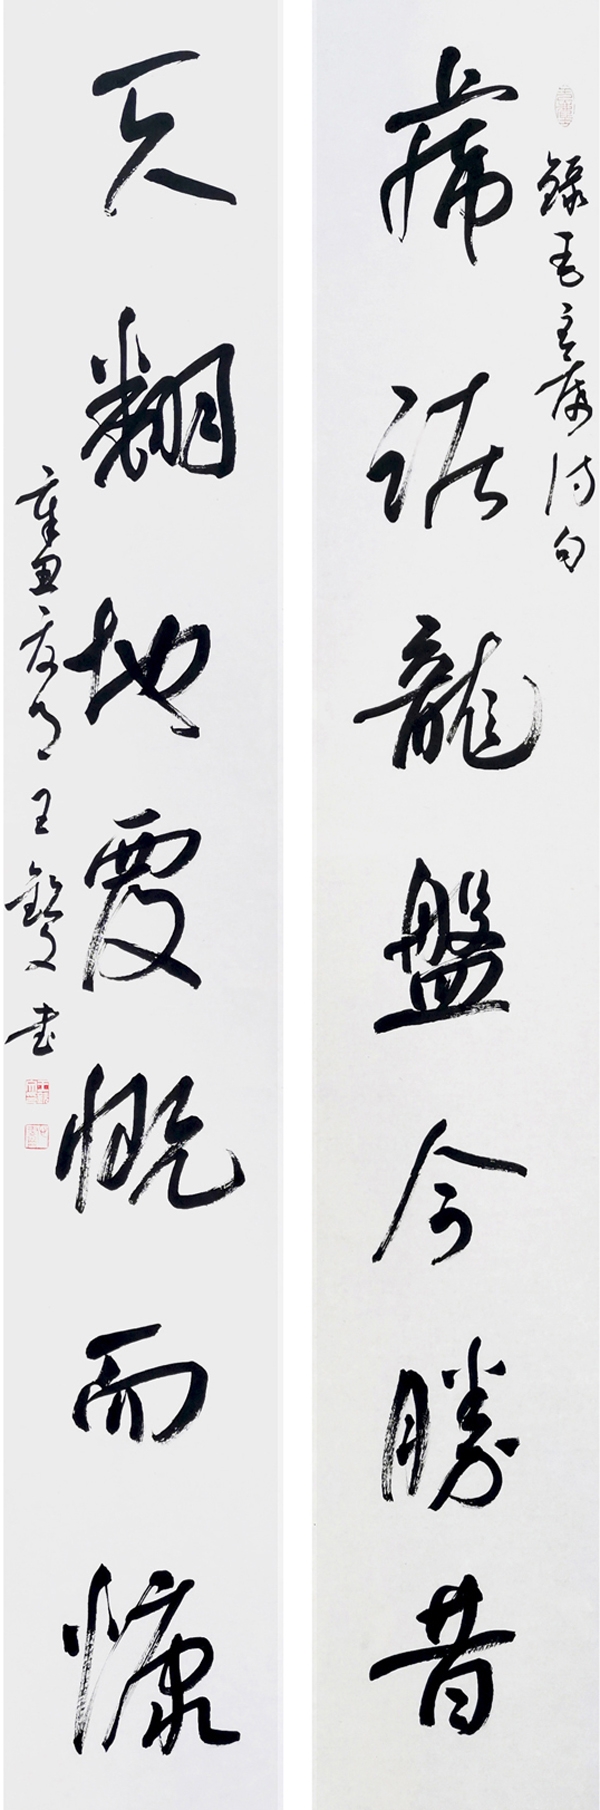 錄毛主席詩句
虎踞龍盤今勝昔
天翻地覆慨而慷
辛丑夏月王書